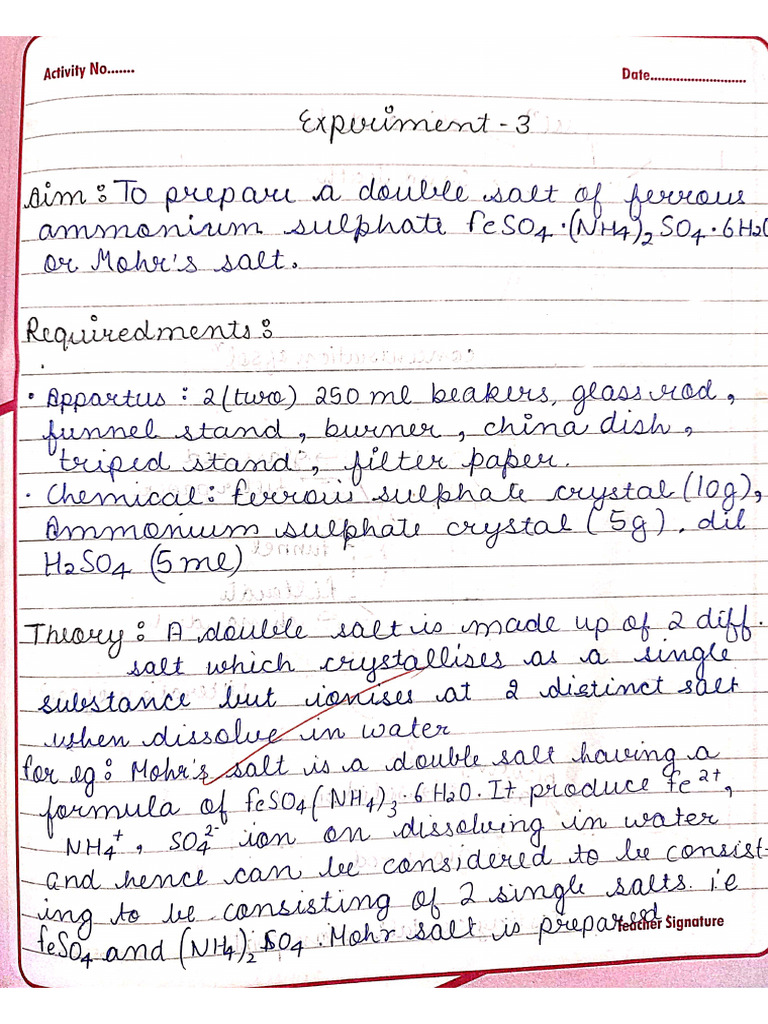 Activity No.......
Date..........................
Experiment - 3
Aim : To prepare a double salt of ferrous
ammonium sulphate FeSO4·(NH4)2SO4·6H2O
or Mohr's salt.
Requiredments :
• Appartus : 2(two) 250 ml beakers, glass rod,
funnel stand, burner, china dish,
triped stand, filter paper.
• Chemical : ferrous sulphate crystal (10g),
Ammonium sulphate crystal (5g), dil
H2SO4 (5ml)
Theory : A double salt is made up of 2 diff.
salt which crystallises as a single
substance but ionises at 2 distinct salt
when dissolve in water
for eg : Mohr's salt is a double salt having a
formula of FeSO4(NH4)3·6H2O. It produce Fe2+,
NH4+, SO4 2- ion on dissolving in water
and hence can be considered to be consist-
ing to be consisting of 2 single salts. i.e
FeSO4 and (NH4)2SO4. Mohr salt is prepared
Teacher Signature